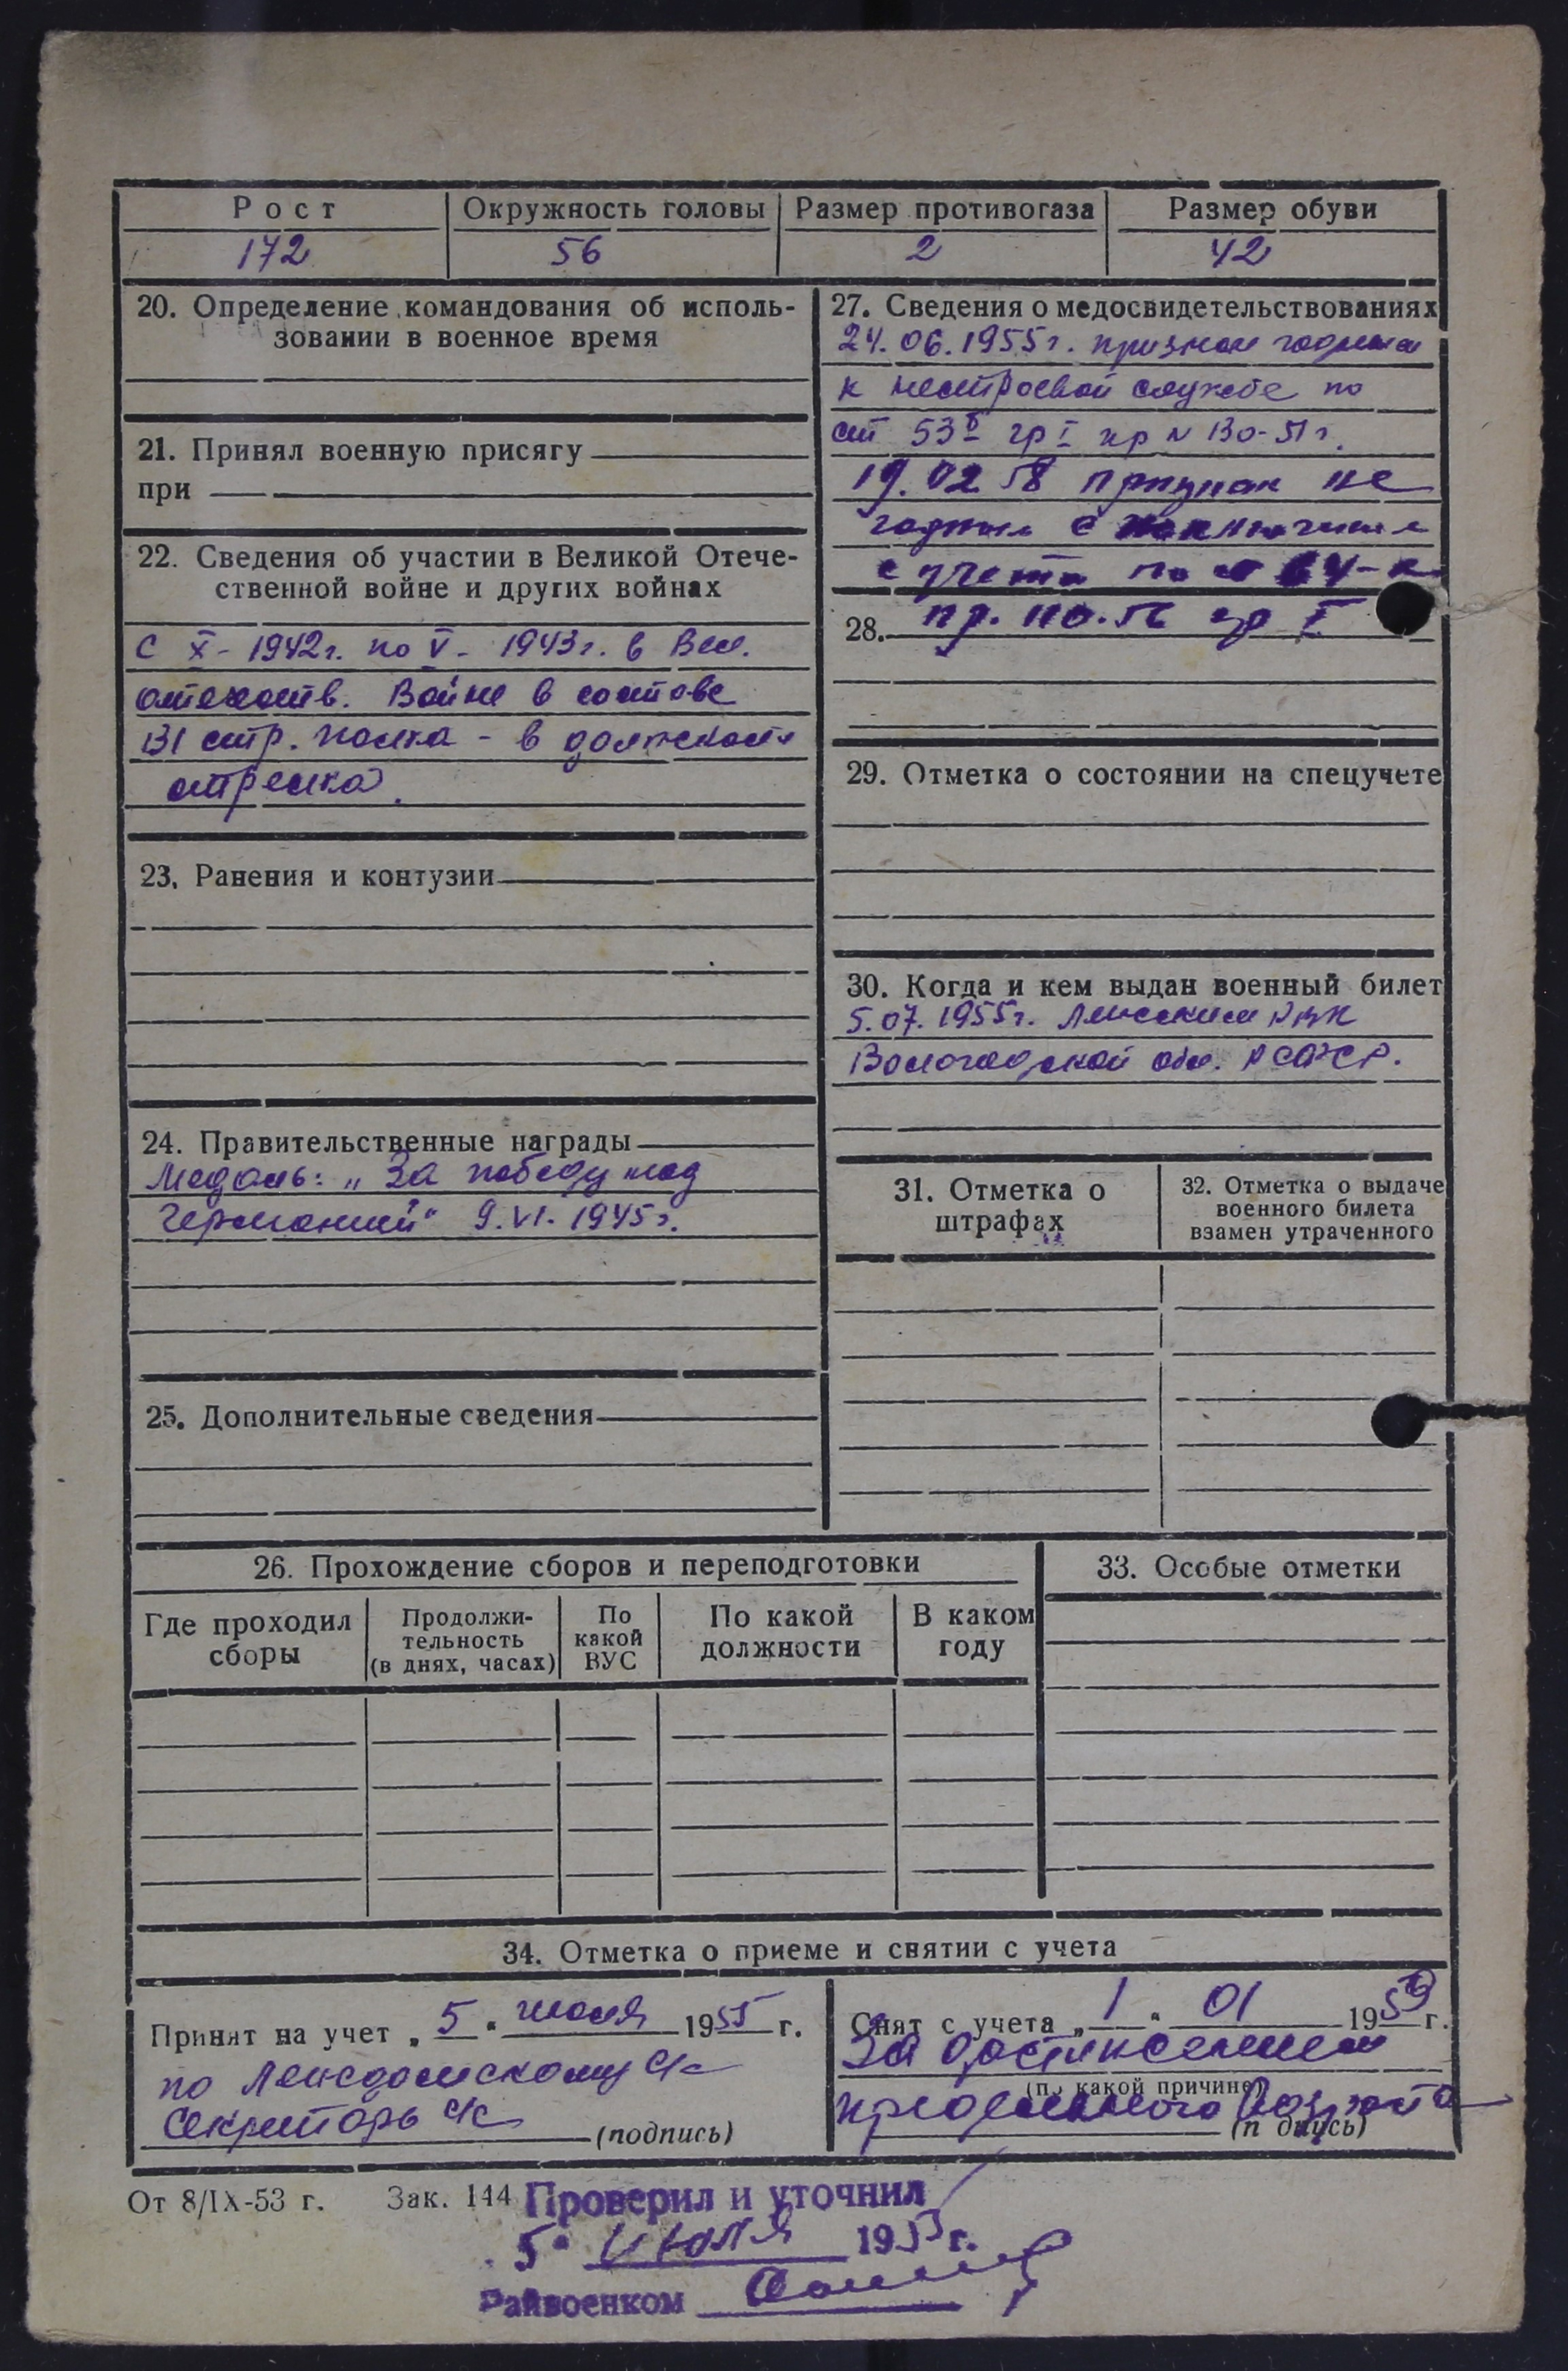 Рост Окружность головы Размер противогаза Размер обуви
172 56 2 42
20. Определение командования об исполь-
зовании в военное время
21. Принял военную присягу
при
22. Сведения об участии в Великой Отече-
ственной войне и других войнах
С X - 1942г. по V - 1943г. в Вел.
отечеств. Войне в составе
131 стр. полка - в должности
стрелка.
23. Ранения и контузии
24. Правительственные награды
Медаль: „За победу над
Германией“ 9.VI.1945г.
25. Дополнительные сведения
27. Сведения о медосвидетельствованиях
24.06.1955г. признан годным
к нестроевой службе по
ст 53 гр I пр N 130-51г.
19.02.58 признан не
годным с исключением
с учета по
28. пр. гр I
29. Отметка о состоянии на спецучете
30. Когда и кем выдан военный билет
5.07.1955г. РВК
Вологодской обл. РСФСР.
31. Отметка о
штрафах
32. Отметка о выдаче
военного билета
взамен утраченного
26. Прохождение сборов и переподготовки
Где проходил
сборы
Продолжи-
тельность
(в днях, часах)
По
какой
ВУС
По какой
должности
В каком
году
33. Особые отметки
34. Отметка о приеме и снятии с учета
Принят на учет „5“ июля 1955 г.
по с/с
Секретарь с/с
(подпись)
Снят с учета „1“ 01 1959 г.
За достижением
(по какой причине)
предельного возраста
(подпись)
От 8/IX-53 г. Зак. 144
Проверил и уточнил
„5“ июля 195 г.
Райвоенком